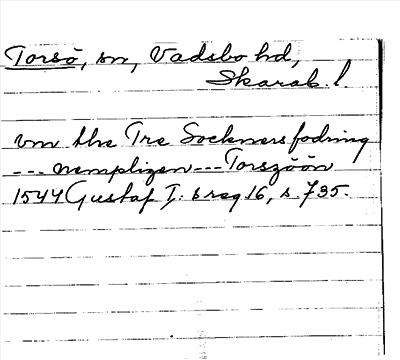 Torsö, sn, Vadsbo hd,
Skarab. l.
om the Tre Socknersfodring
--- nempligen --- Torszöön
1544 Gustaf I: s reg 16, s. 735.